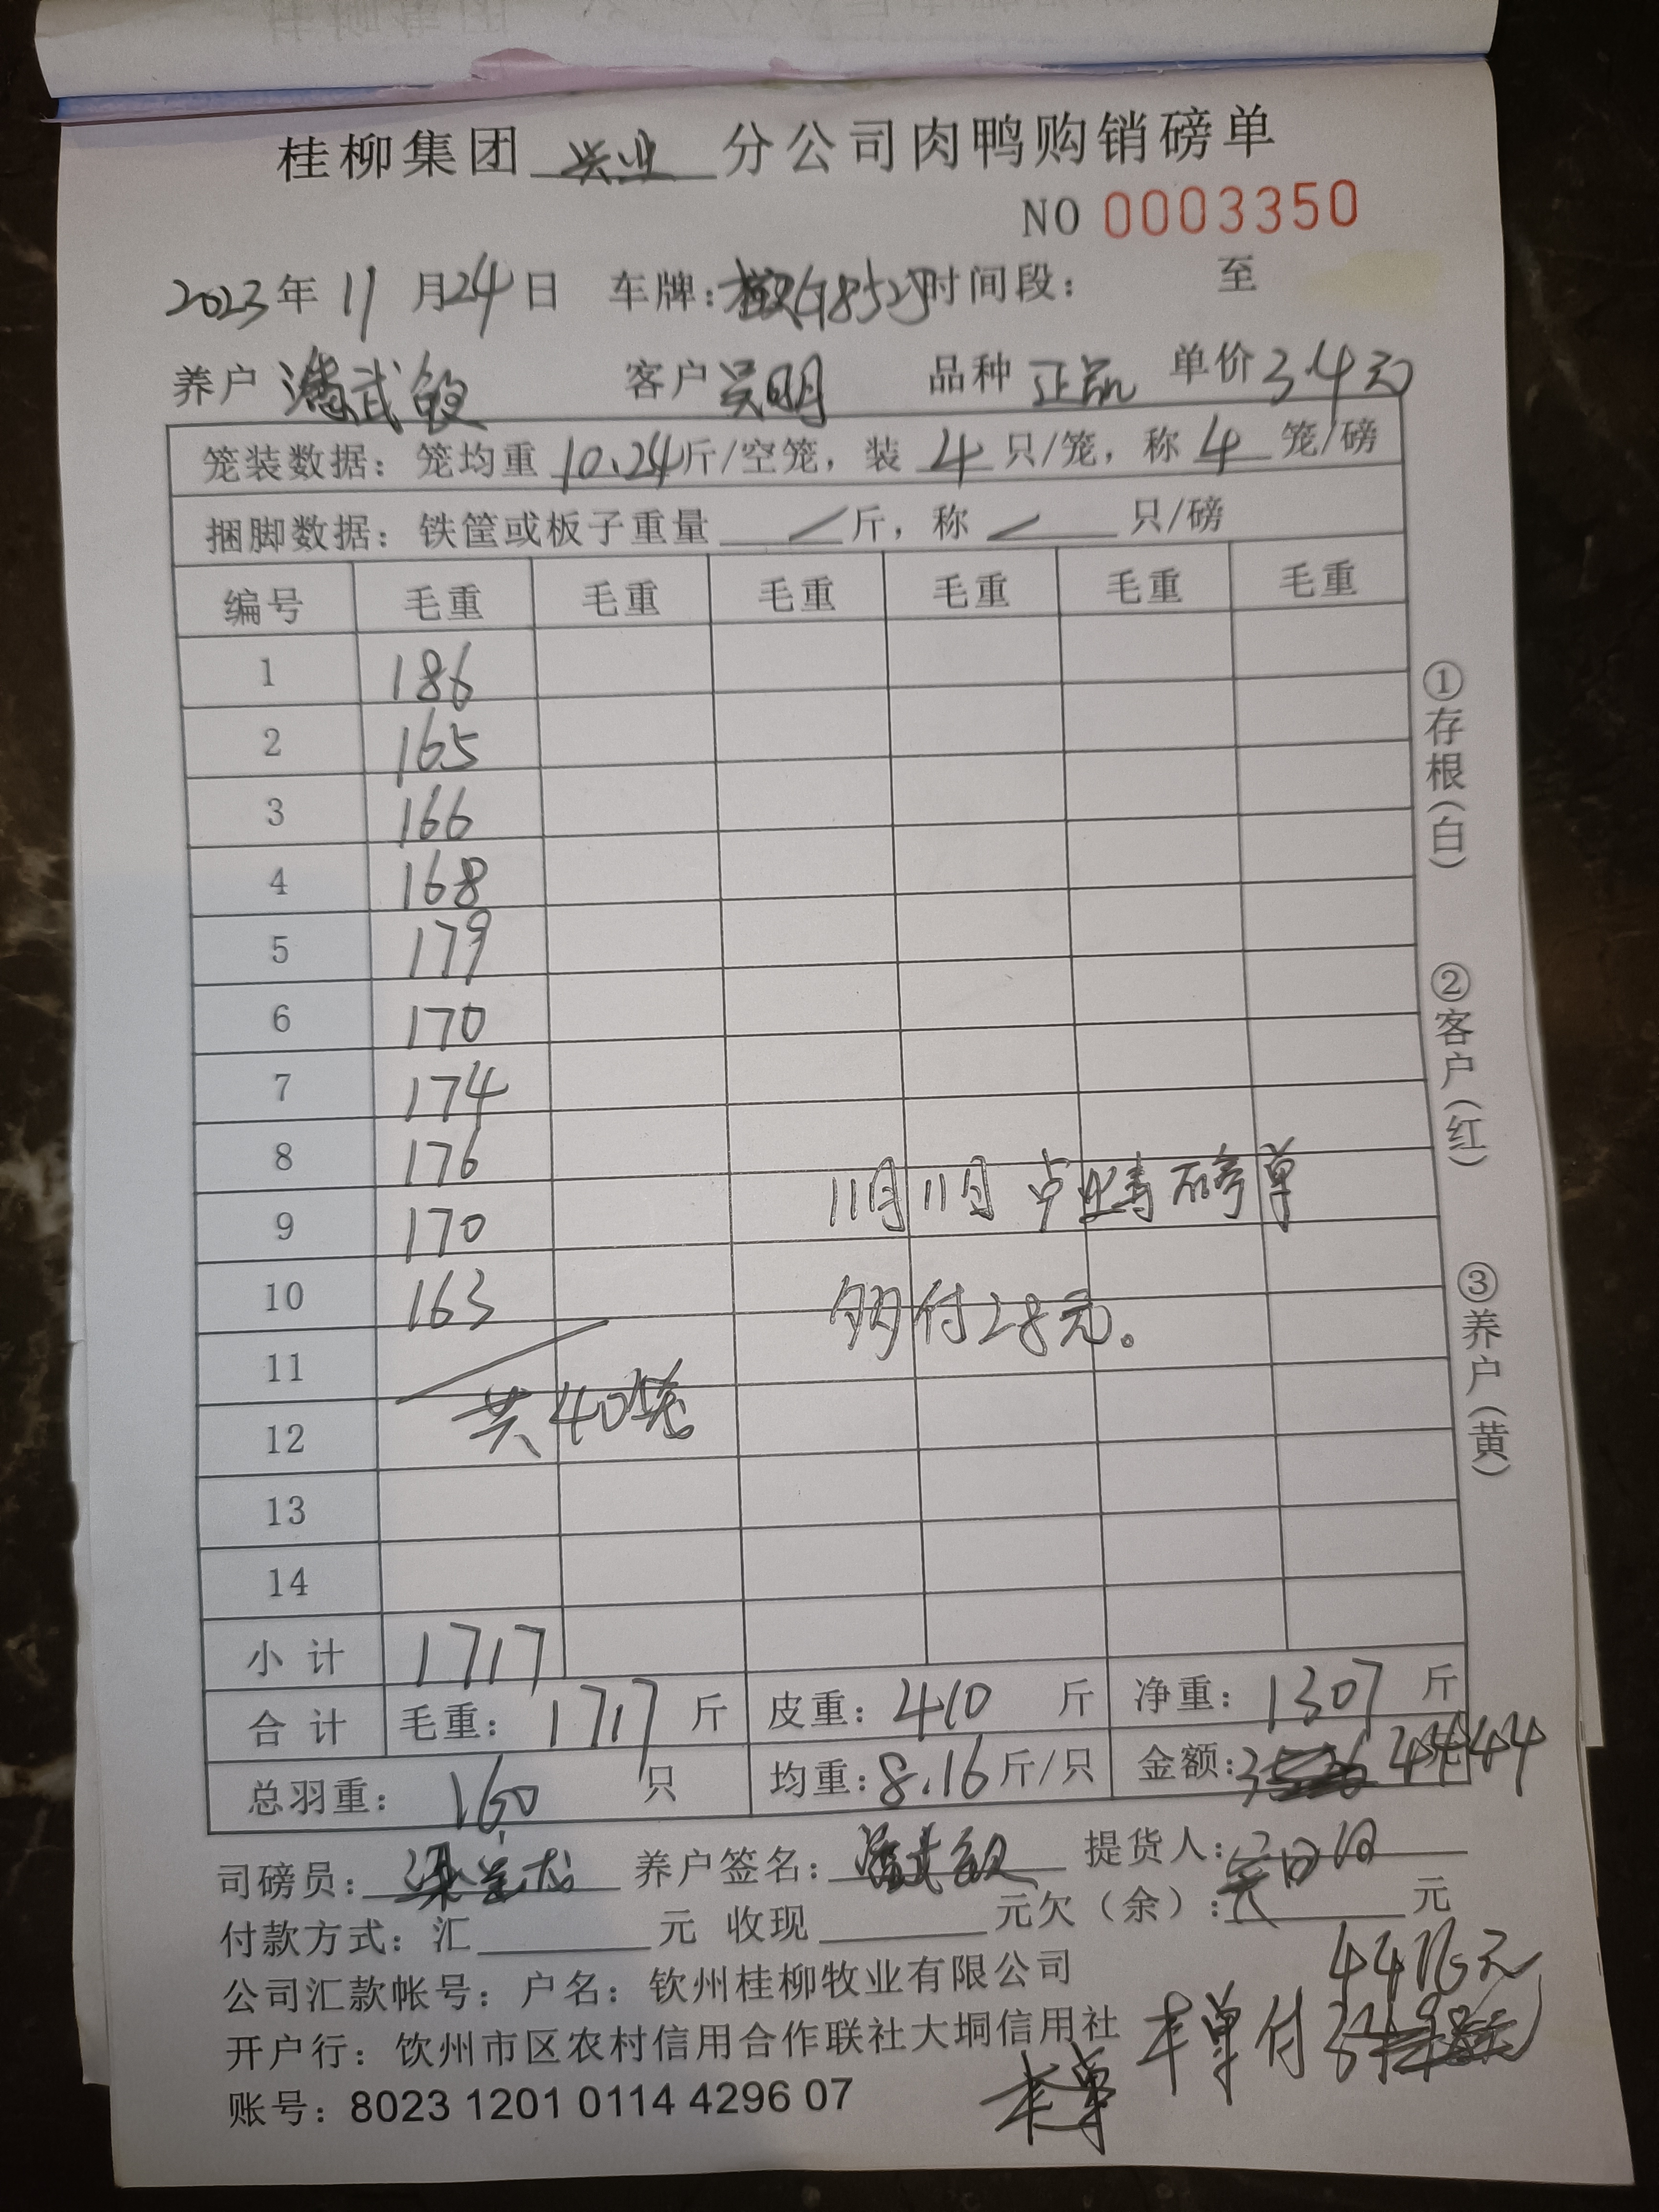 桂柳集团 兴业 分公司肉鸭购销磅单
NO 0003350
2023年 11 月 24 日 车牌: 时间段： 至
养户 潘武 客户 吴明 品种 正品 单价 3.4元
笼装数据：笼均重 10.24 斤/空笼，装 4 只/笼，称 4 笼/磅
捆脚数据：铁筐或板子重量 / 斤，称 / 只/磅
编号 毛重 毛重 毛重 毛重 毛重 毛重
1 186
2 165
3 166
4 168
5 179
6 170
7 174
8 176
9 170
10 163
11
12
13
14
共40笼
11月11日 磅单
多付28元。
小 计 1717
合 计 毛重：1717 斤 皮重：410 斤 净重：1307 斤
总羽重：160 只 均重：8.16 斤/只 金额： 4444
司磅员： 养户签名：潘武 提货人：
付款方式：汇 元 收现 元欠（余）： 元
公司汇款帐号：户名：钦州桂柳牧业有限公司
4416元
开户行：饮州市区农村信用合作联社大垌信用社
本单付
账号：8023 1201 0114 4296 07
本单
①存根（白）
②客户（红）
③养户（黄）